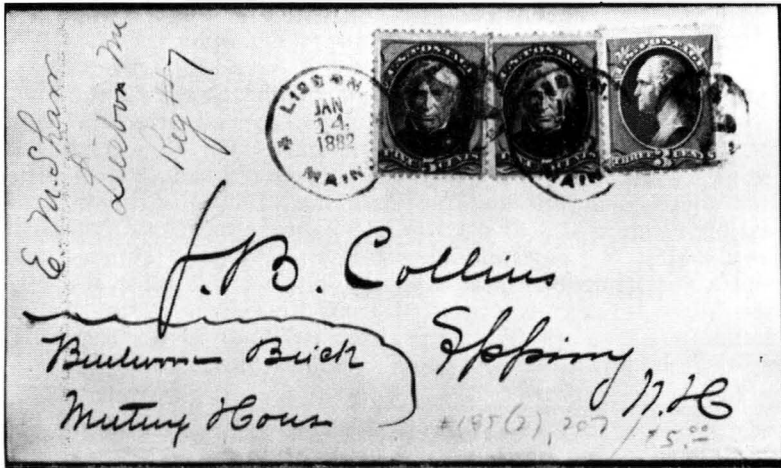 E. M. Shaw
Lisbon Me
Reg #7
LISBON.
JAN
14
1882
MAIN
U.S. POSTAGE
FIVE 5 CENTS
U.S. POSTAGE
FIVE 5 CENTS
U.S. POSTAGE
THREE 3 CENTS
J. B. Collins
Epping
N. H
Brick
Meeting House
#185(2), 207 / 15.00